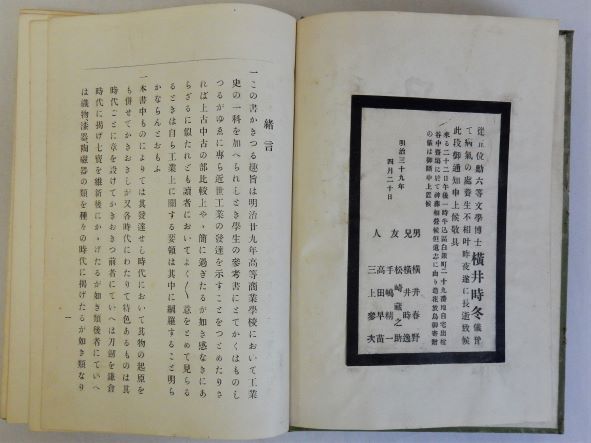 從五位勳六等文學博士橫井時冬儀豫
て病氣の處養生不相叶昨夜遂に長逝致候
此段御通知申上候敬具
來る二十二日午後一時牛込區白銀町二十九番地自宅出棺
谷中齋場に於て神葬相營候但遺志に由り造花放鳥御寄贈
の儀は御斷申上置候
明治三十九年
四月二十日
男 橫井春野
兄 橫井時逸
友人 松崎藏之助
手嶋精一
高田早苗
三上參次
緒言
一この書かきつる趣旨は明治廿九年高等商業學校において工業
史の一科を加へられしとき學生の參考書にとてかくはものし
つるがゆゑに專ら近世工業の發達を示すことをつとめたりさ
れば上古中古の部比較上やゝ簡に過ぎたるが如き感なきにあ
らざるに似たれども讀者においてよく〳〵意をとめて見らる
るときは自ら工業上に關する要領は其中に網羅すること明ら
かならんとおもふ
一本書中ものによりては其發達せし時代において其物の起原を
も併せてかきおきしが又各時代にわたりて特色あるものは其
時代ごとに章を設けてかきおきつ前者にていへば刀劍を鎌倉
時代に揭げ七寶を維新後にかゝげたるが如き類後者にていへ
ば織物漆器陶磁器の類を種々の時代に揭げたるが如き類なり
一